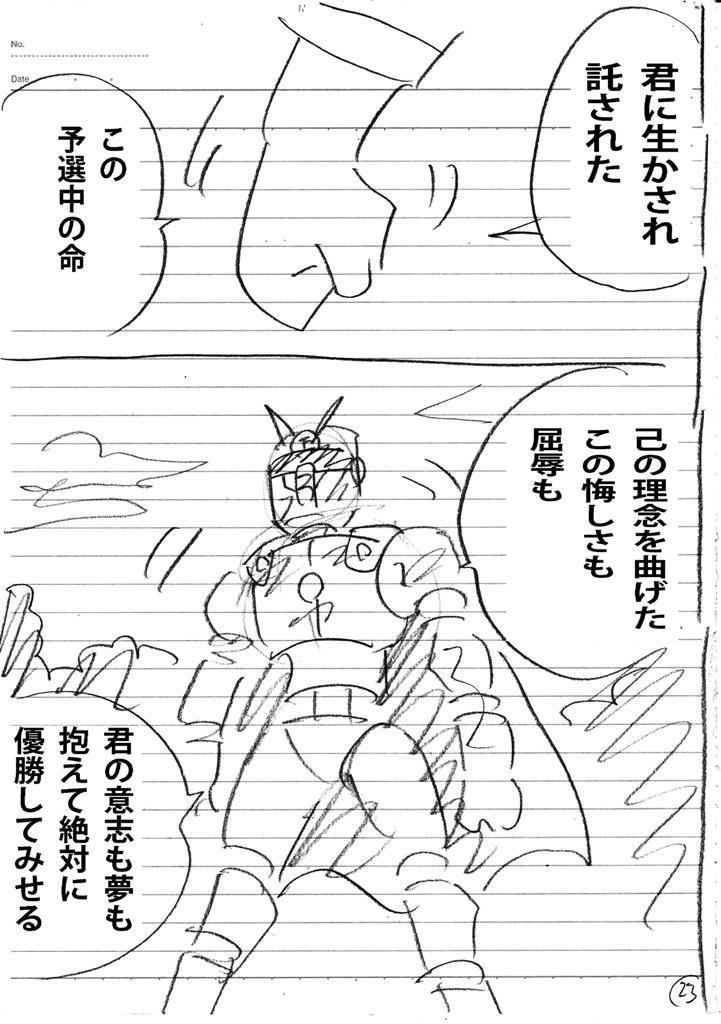 No.
Date
君に生かされ
託された
この
予選中の命
己の理念を曲げた
この悔しさも
屈辱も
君の意志も夢も
抱えて絶対に
優勝してみせる
23